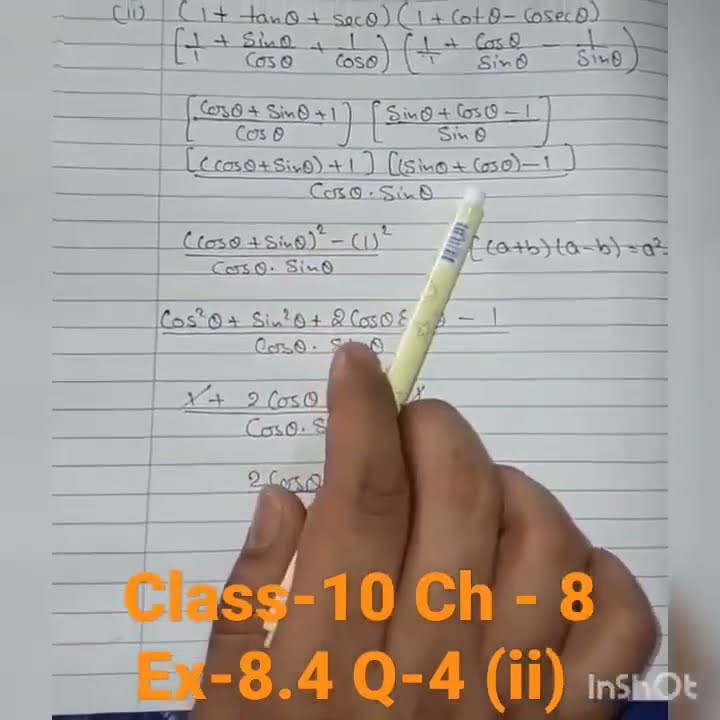 (ii) (1 + tanθ + secθ) (1 + cotθ - cosecθ)
[1/1 + Sinθ/Cosθ + 1/Cosθ] (1/1 + Cosθ/Sinθ - 1/Sinθ)
[Cosθ + Sinθ + 1/Cosθ] [Sinθ + Cosθ - 1/Sinθ]
[(Cosθ + Sinθ) + 1] [(Sinθ + Cosθ) - 1]
Cosθ · Sinθ
(Cosθ + Sinθ)² - (1)² [(a+b)(a-b) = a²-
Cosθ · Sinθ
Cos²θ + Sin²θ + 2Cosθ - 1
Cosθ ·
1 + 2Cosθ
Cosθ ·
2Cosθ
Class-10 Ch - 8
Ex-8.4 Q-4 (ii)
InShOt